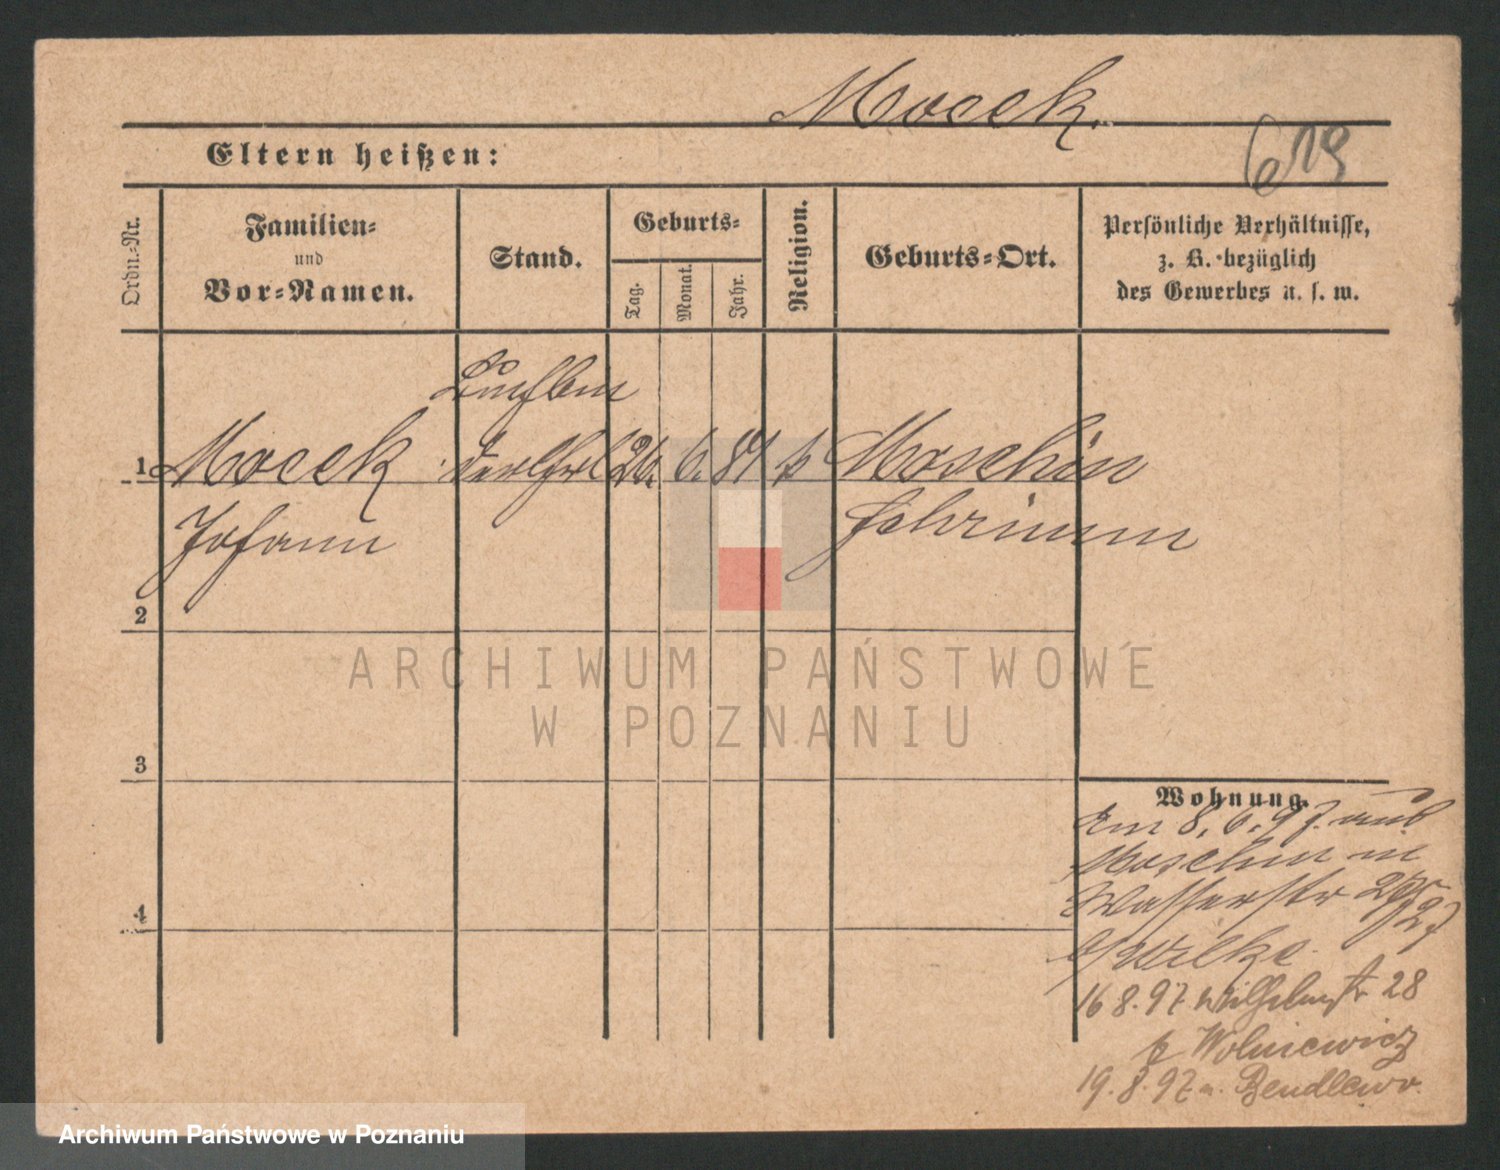 Mocek.
619
Eltern heißen:
Ordn.-Nr.
Familien-
und
Vor-Namen.
Stand.
Geburts-
Tag.
Monat.
Jahr.
Religion.
Geburts-Ort.
Persönliche Verhältnisse,
z. B. bezüglich
des Gewerbes u. s. w.
1
Mocek
Johann
26. 6. 81 k
Moschin
Schrimm
2
3
4
ARCHIWUM PAŃSTWOWE
W POZNANIU
Wohnung.
Am 8. 6. 97. aus
Moschin in
Wasserstr 27
b/ Wilke.
16 8. 97. Wilhelmstr 28
b Wolniewicz
19. 8. 97 n. Bendlewo.
Archiwum Państwowe w Poznaniu